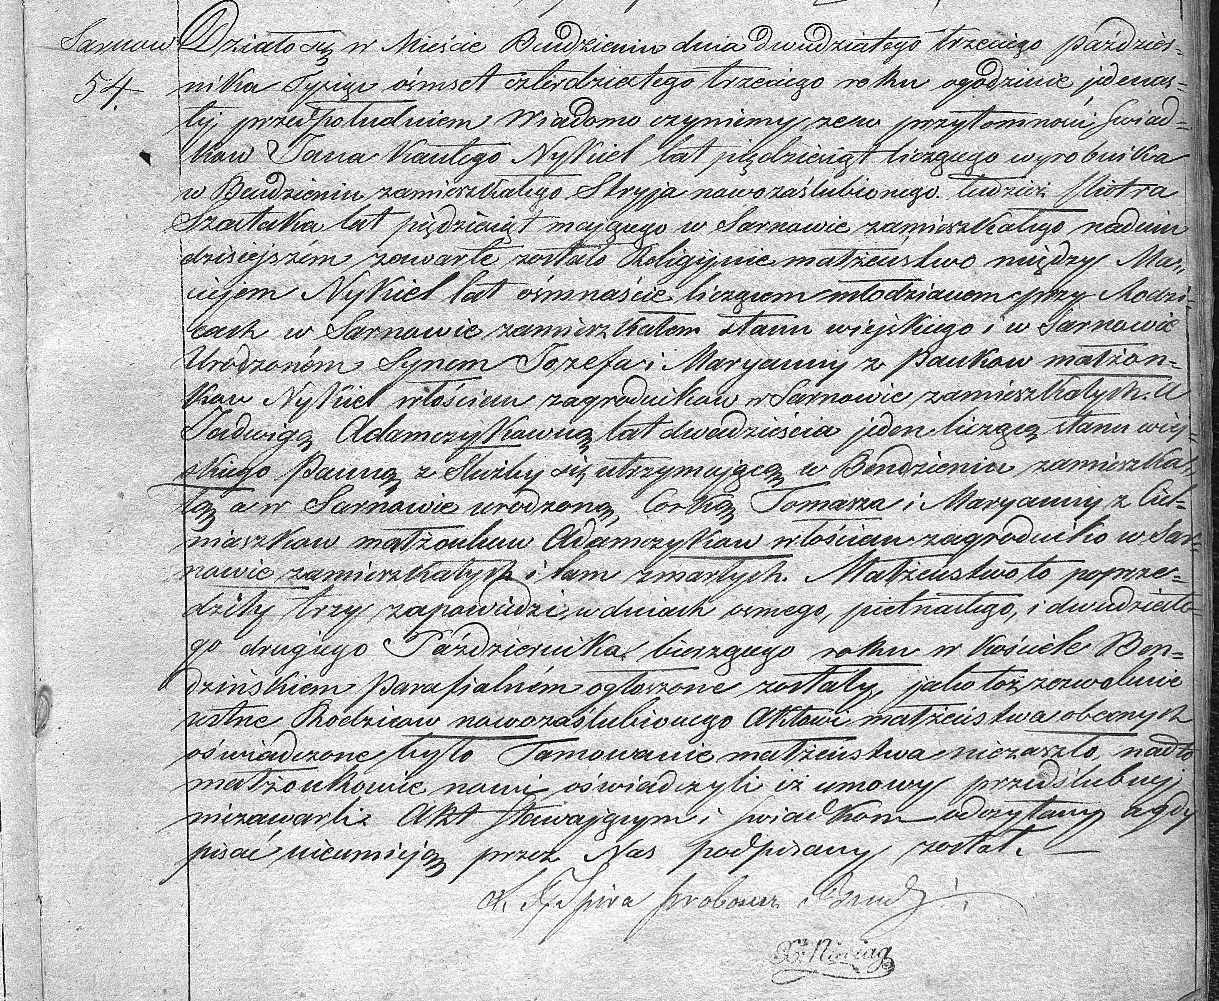 Sarnow
54.
Działo się w Mieście Bendzieniu dnia dwudziestego trzeciego Paździer=
nika Tysiąc ośmset czterdziestego trzeciego roku ogodzinie jedenas=
tej przed południem Wiadomo czyniemy, ze w przytomności Świad=
kow Jana Kantego Nykiel lat pięćdziesiąt liczącego wyrobnika
w Bendzieniu zamieszkałego Stryja nowozaślubionego tudzież Piotra
Szataka lat pięćdziesiąt mającego w Sarnowie zamieszkałego na dniu
dzisiejszém zawarte zostało Religijnie małżeństwo między Ma=
ciejem Nykiel lat ośmnaście liczącem młodzianem przy Rodzi=
cach w Sarnowie zamieszkałem stanu wiejskiego i w Sarnowie
Urodzoném Synem Jozefa i Maryanny z Pankow małżon=
kow Nykiel włościan zagrodnikow w Sarnowie zamieszkałych. a
Jadwigą Adamczykowną lat dwadzieścia jeden liczącą stanu wiej=
skiego Panną z Służby się utrzymującą w Bendzieniu zamieszka=
łą a w Sarnowie urodzoną, Corką Tomasza i Maryanny z
małżonkow Adamczykow włościan zagrodnikow w Sar=
nowie zamieszkałych i tam zmarłych. Małżeństwo to poprze=
dziły trzy zapowiedzi w dniach osmego, pietnastego, i dwudzieste=
go drugiego Października bieżącego roku w Kościele Ben=
dzińskiem Parafialném ogłoszone zostały, jako toż zezwolenie
ustne Rodzicow nowozaślubionego Aktowi małżeństwa obecnych
oświadczone było Tamowanie małżeństwa niezaszło, nadto
małżonkowie nowi oświadczyli iż umowy przedślubnej
niezawarli. Akt stawającym i Świadkom odczytany a gdy
pisać nieumieją przez Nas podpisany został.
X. proboszcz